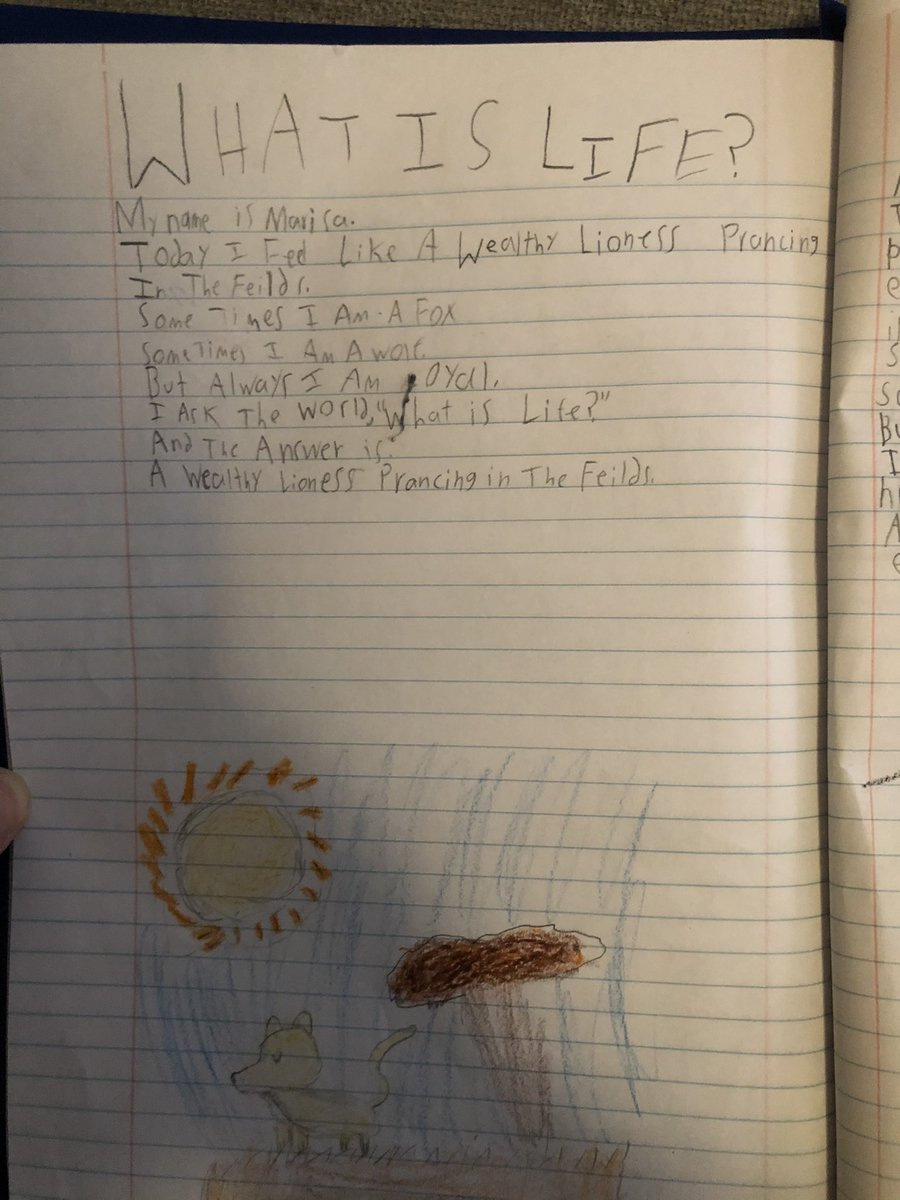 WHAT IS LIFE?
My name is Marisa.
Today I Feel Like A Wealthy Lioness Prancing
In The Feilds.
Some Times I Am A Fox
SomeTimes I Am A wolf.
But Always I Am Loyal.
I Ask The World, "What is Life?"
And The Answer is:
A Wealthy Lioness Prancing in The Feilds.